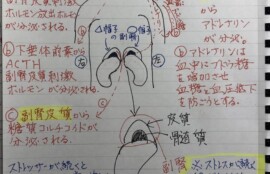 ホルモン放出ホルモン
が分泌される。
ⓑ下垂体前葉から
ACTH
副腎皮質刺激
ホルモンが分泌される。
ⓒ副腎皮質から
糖質コルチコイドが
分泌される。
ストレッサーが続くと
帽子
の副腎
右
左
皮質
髄質
から
アドレナリン
が分泌される。
ⓑアドレナリンは
血中にブドウ糖
を増加させ
血糖と血圧低下
を防ごうとする。
副腎
※ストレスが続く